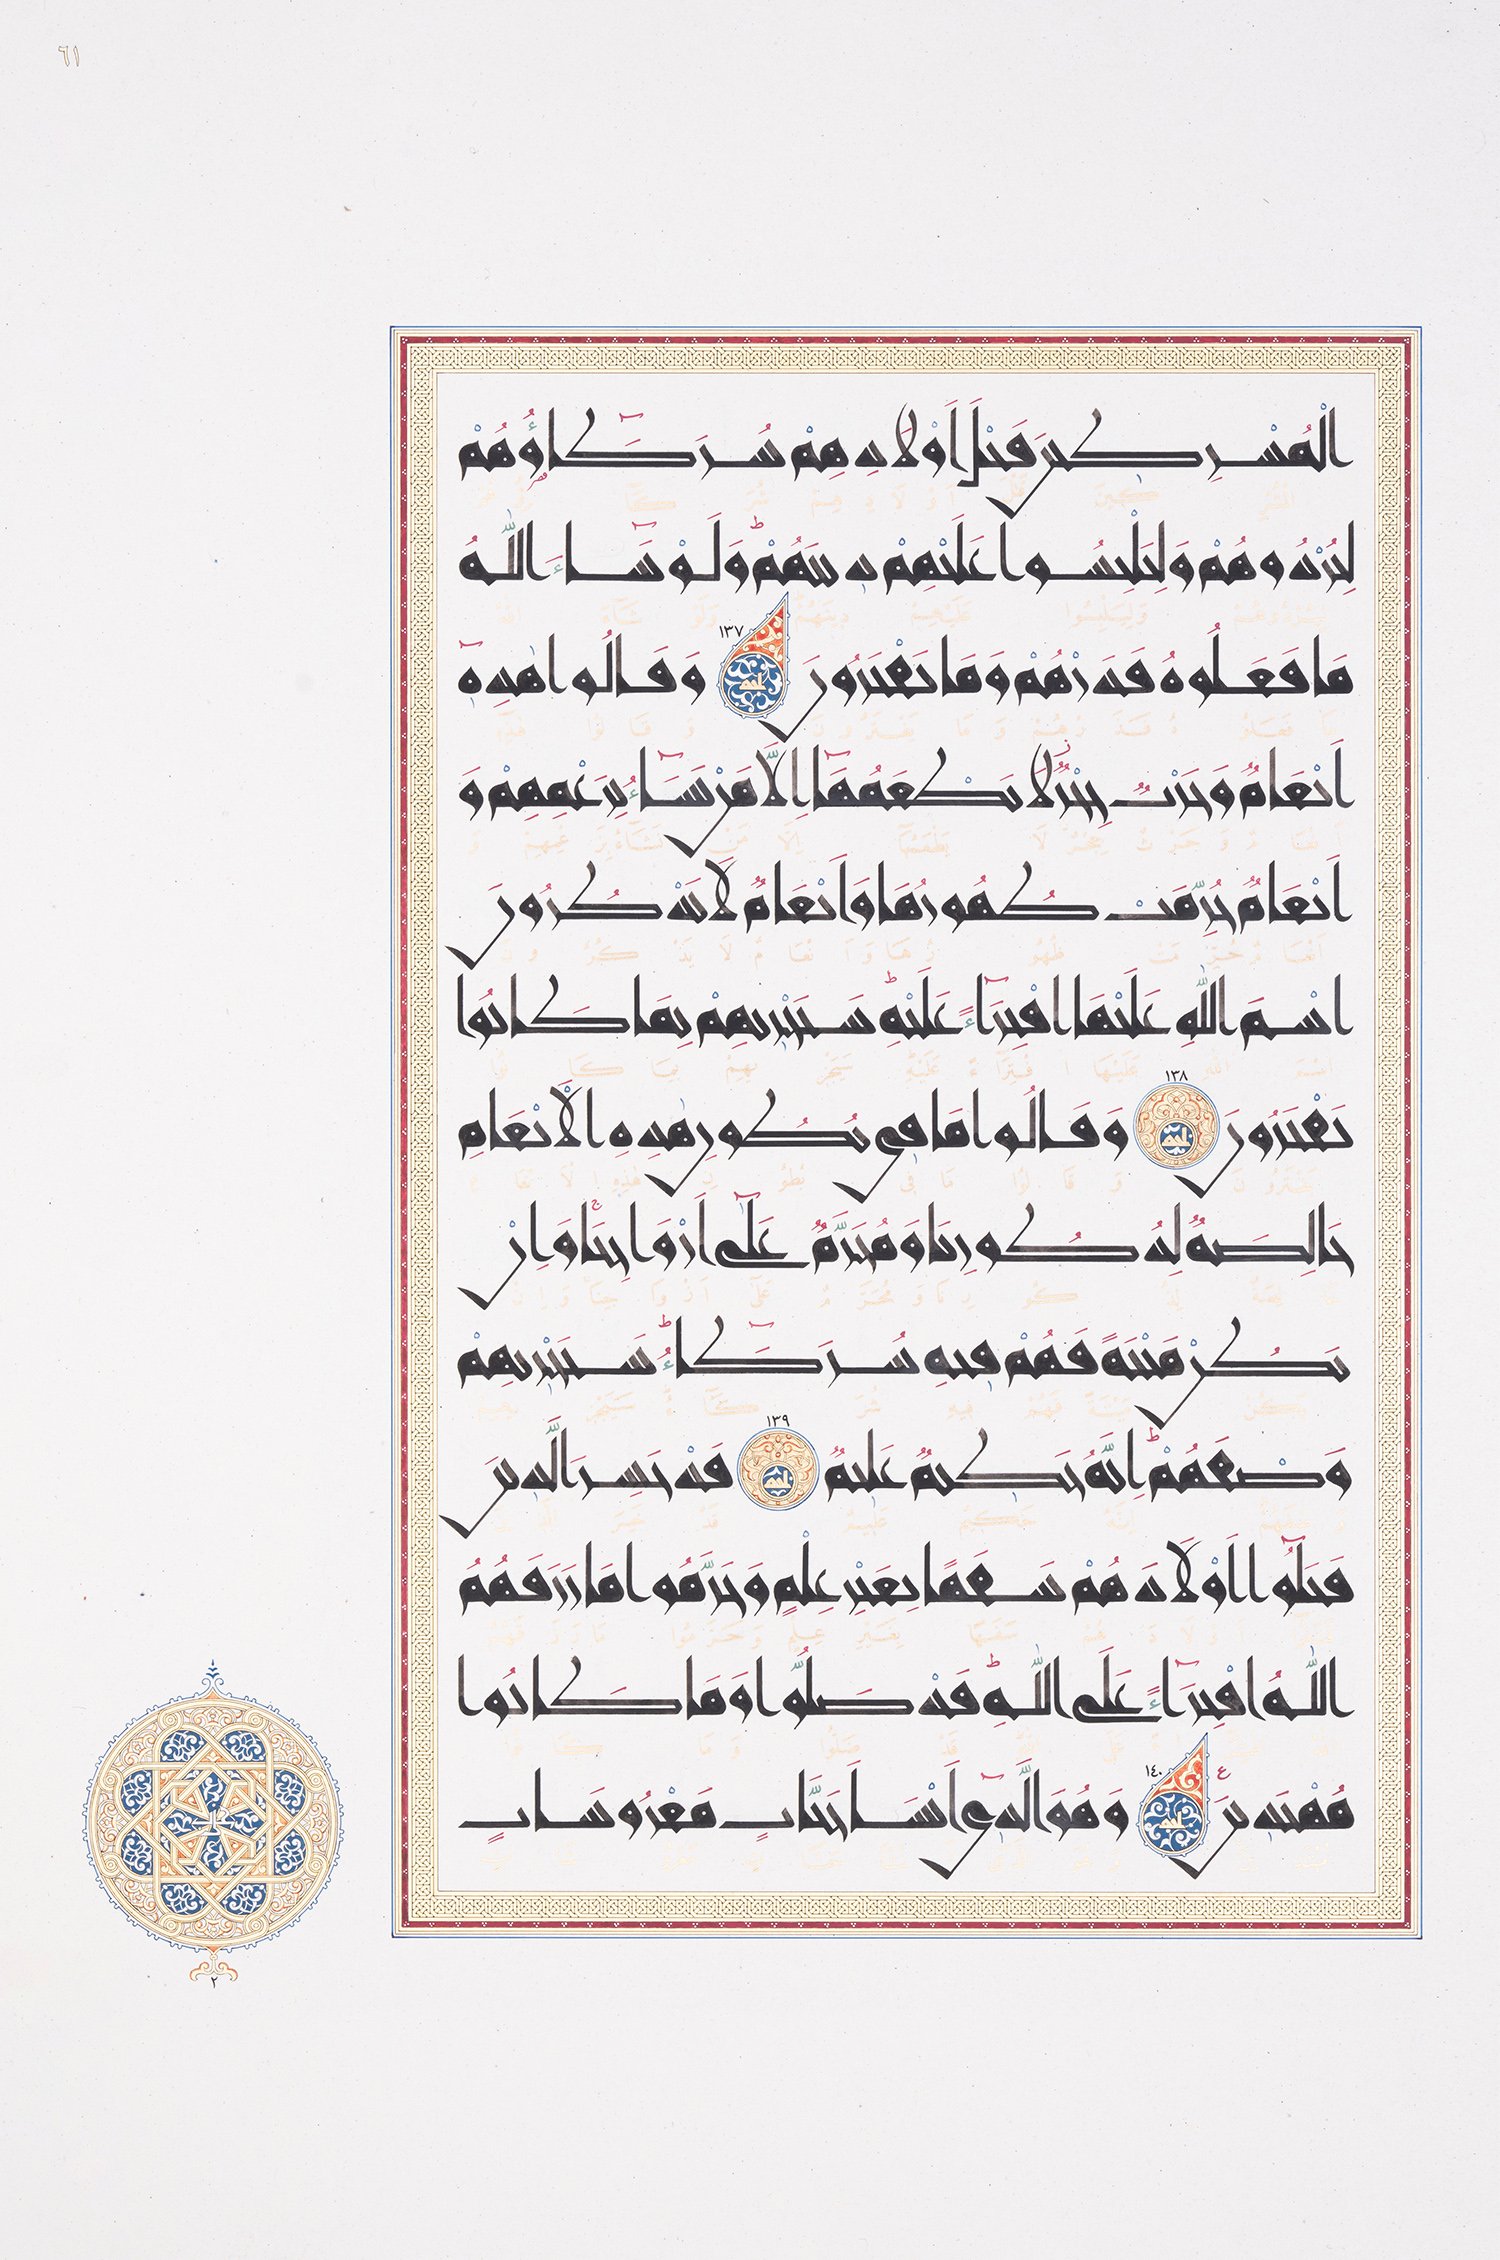 ٦١
الْمُشْرِكِينَ قَتْلَ اَوْلَادِهِمْ شُرَكَاؤُهُمْ
لِيُرْدُوهُمْ وَلِيَلْبِسُوا عَلَيْهِمْ دِينَهُمْ وَلَوْ شَاءَ اللّٰهُ
مَا فَعَلُوهُ فَذَرْهُمْ وَمَا يَفْتَرُونَ ١٣٧ وَقَالُوا هٰذِهِ
اَنْعَامٌ وَحَرْثٌ حِجْرٌ لَا يَطْعَمُهَا اِلَّا مَنْ نَشَاءُ بِزَعْمِهِمْ وَ
اَنْعَامٌ حُرِّمَتْ ظُهُورُهَا وَاَنْعَامٌ لَا يَذْكُرُونَ
اسْمَ اللّٰهِ عَلَيْهَا افْتِرَاءً عَلَيْهِ سَيَجْزِيهِمْ بِمَا كَانُوا
يَفْتَرُونَ ١٣٨ وَقَالُوا مَا فِي بُطُونِ هٰذِهِ الْاَنْعَامِ
خَالِصَةٌ لِذُكُورِنَا وَمُحَرَّمٌ عَلٰى اَزْوَاجِنَا وَاِنْ
يَكُنْ مَيْتَةً فَهُمْ فِيهِ شُرَكَاءُ سَيَجْزِيهِمْ
وَصْفَهُمْ اِنَّهُ حَكِيمٌ عَلِيمٌ ١٣٩ قَدْ خَسِرَ الَّذِينَ
قَتَلُوا اَوْلَادَهُمْ سَفَهًا بِغَيْرِ عِلْمٍ وَحَرَّمُوا مَا رَزَقَهُمُ
اللّٰهُ افْتِرَاءً عَلَى اللّٰهِ قَدْ ضَلُّوا وَمَا كَانُوا
مُهْتَدِينَ ١٤٠ وَهُوَ الَّذِي اَنْشَاَ جَنَّاتٍ مَعْرُوشَاتٍ
٢